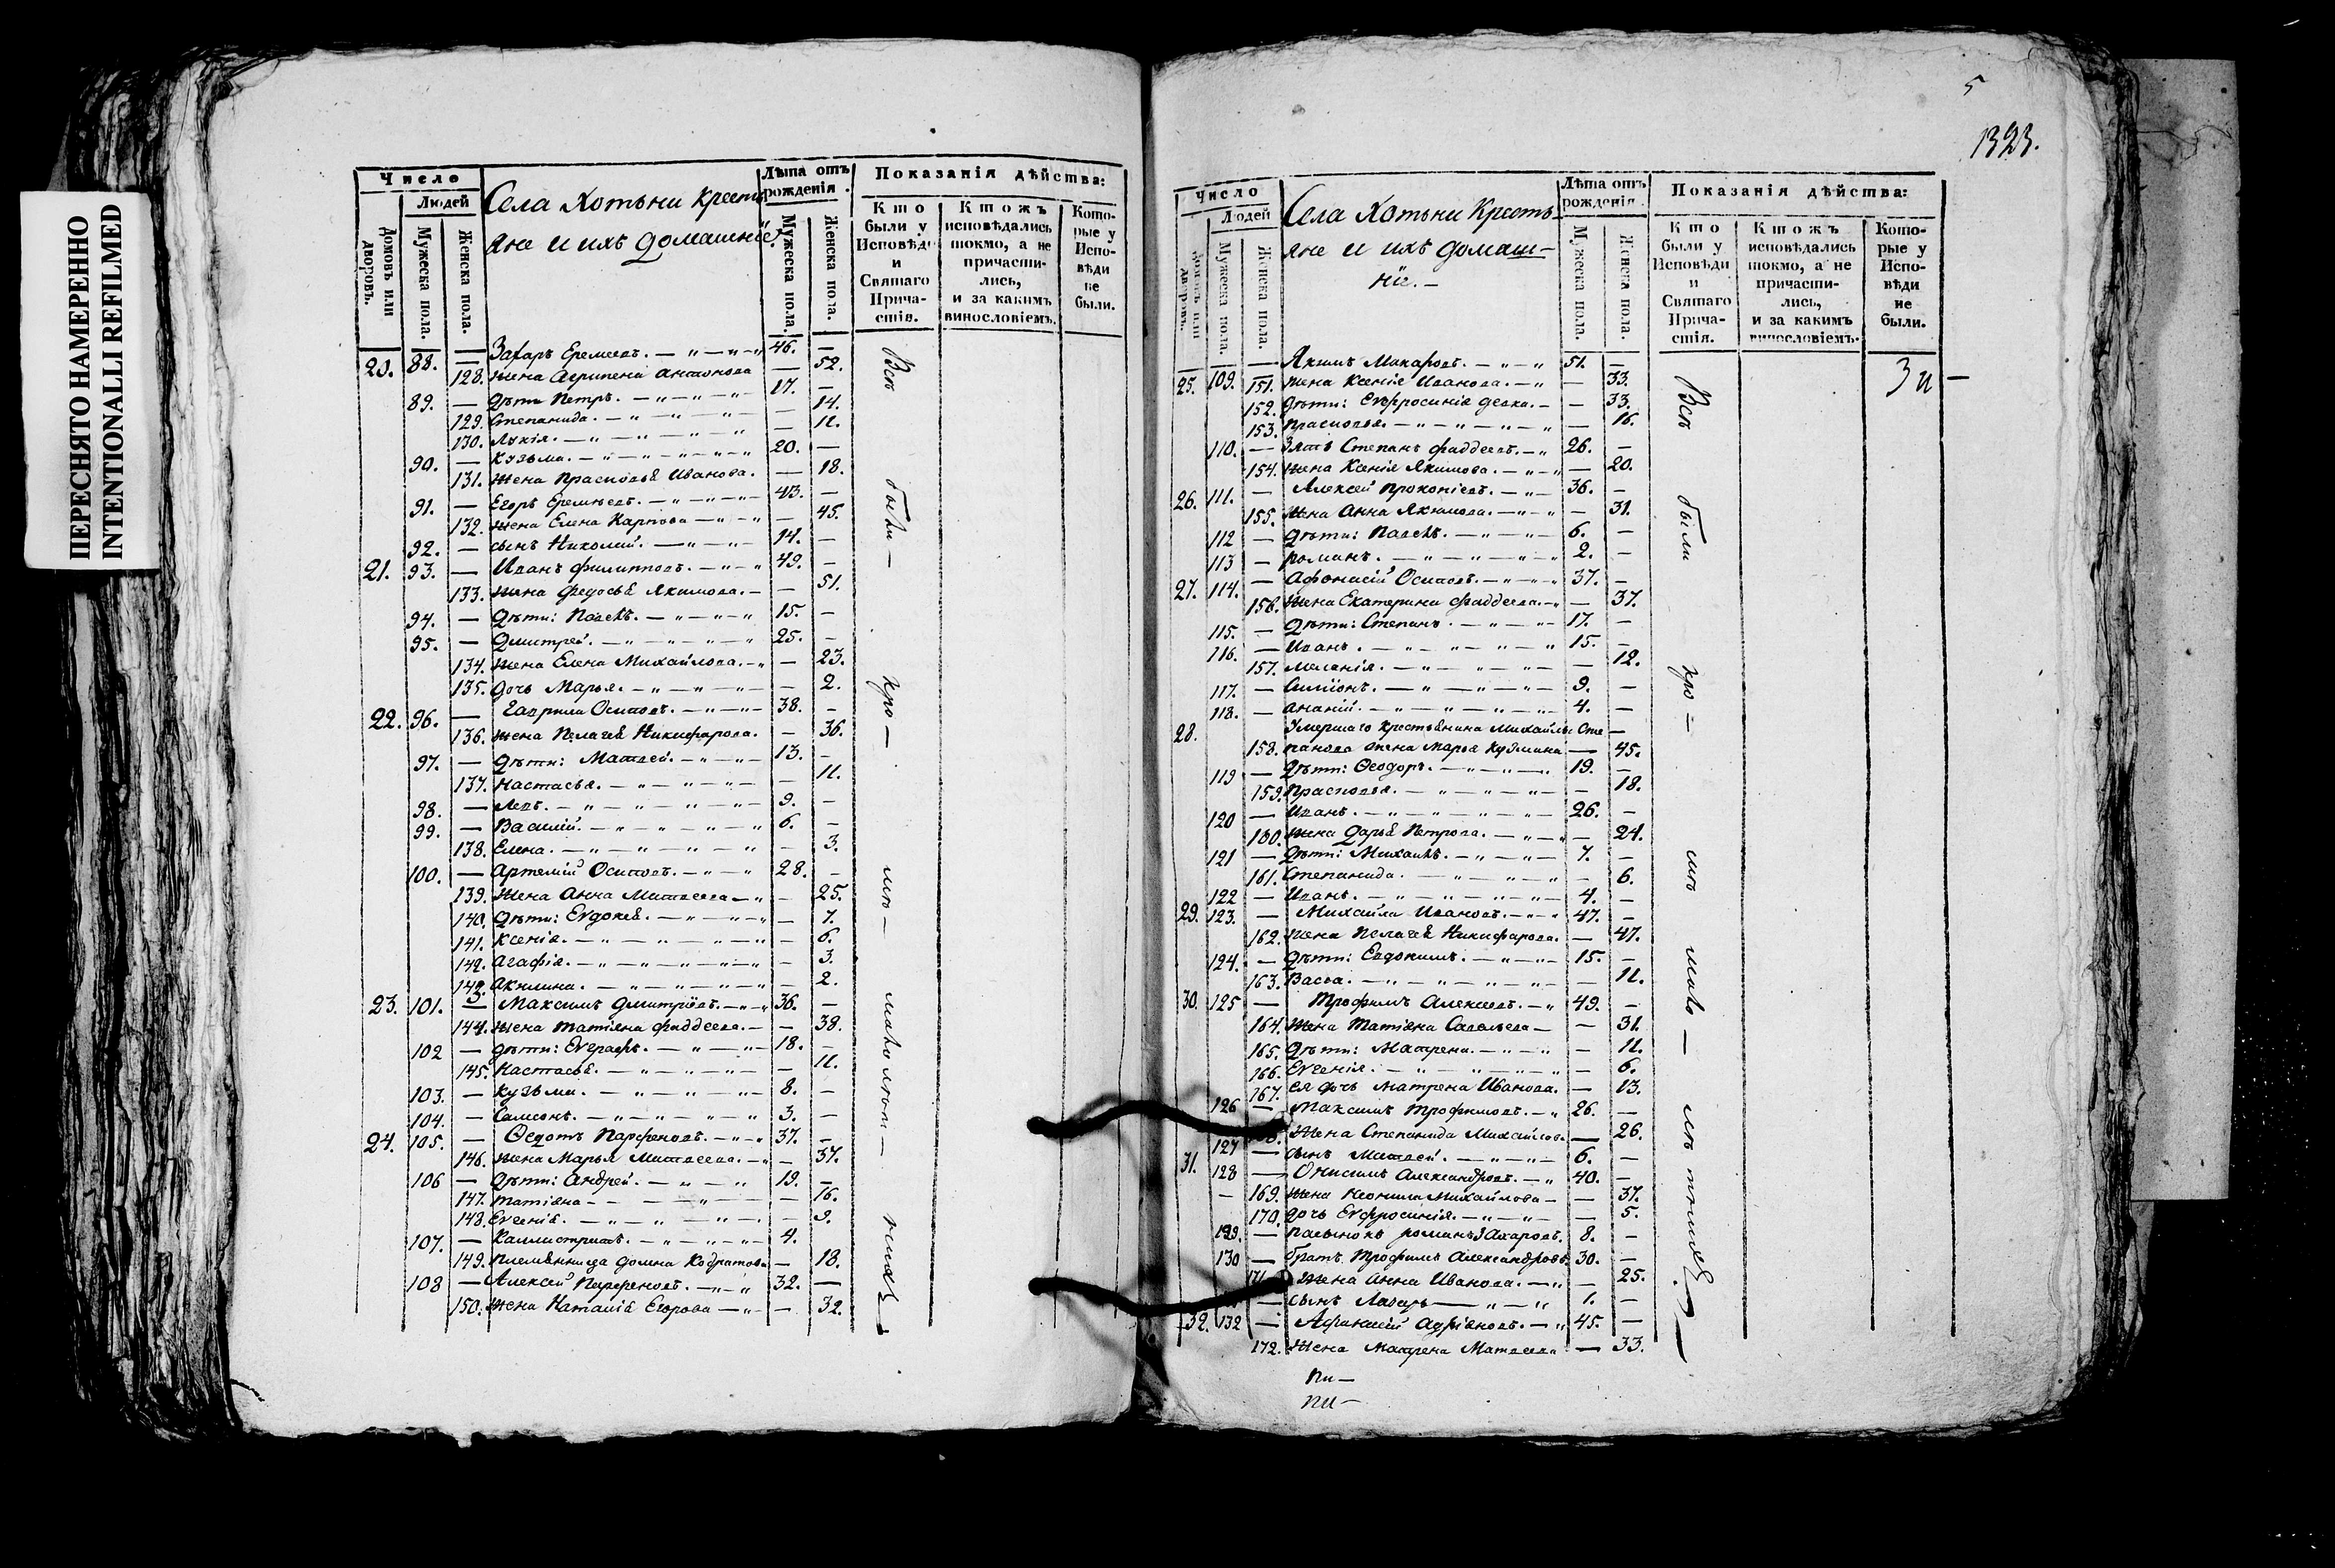 ПЕРЕСНЯТО НАМЕРЕННО
INTENTIONALLI REFILMED
Число
Людей
Домовъ или дворовъ.
Мужеска пола.
Женска пола.
Села Хотьни кресть
яне и ихъ домашніе
Лѣта отъ рожденія.
Мужеска пола.
Женска пола.
Показанія дѣйства:
Кто были у Исповѣди и Святаго Причастія.
Ктожъ исповѣдались токмо, а не причастились, и за какимъ винословіемъ.
Которые у Исповѣди не были.
20. 88. — Захаръ Еремеевъ. 46. —
128. жена Агрипена Антонова — 52.
89. — дѣти Петръ. 17. —
129. Степанида. — 14.
130. Лукія. — 11.
90. — Кузьма. 20. —
131. жена Прасковья Иванова. — 18.
91. — Егоръ Еремѣевъ. 43. —
132. жена Елена Карпова — 45.
92. — сынъ Николай. 14. —
21. 93. — Иванъ Филипповъ. 49. —
133. жена Федосья Якимова. — 51.
94. — дѣти: Павелъ. 15. —
95. — Дмитрей. 25. —
134. жена Елена Михайлова. — 23.
135. дочь Марья. — 2.
22. 96. — Гаврила Осиповъ. 38. —
136. жена Пелагея Никифарова. — 36.
97. — дѣти: Матвей. 13. —
137. Настасья. — 11.
98. — Левъ. 9. —
99. — Василій. 6. —
138. Елена. — 3.
100. — Артемій Осиповъ. 28. —
139. жена Анна Матвеева — 25.
140. дѣти: Евдокея. — 7.
141. Ксенія. — 6.
142. Агафія. — 3.
143. Акилина. — 2.
23. 101. — Максимъ Дмитріевъ. 36. —
144. жена Татіяна Фаддеева. — 38.
102 — дѣти: Евграфъ. 18. —
145. Настасья. — 11.
103. — Кузьма. 8. —
104. — Самсонъ. 3. —
24. 105. — Ѳедотъ Парфеновъ. 37. —
146. жена Марья Матвеева. — 37.
106 — дѣти: Андрей. 19. —
147. Татіяна — 16.
148. Евгенія. — 9.
107. — Каллистратъ. 4. —
149. племянница Домна Кодратова — 18.
108 — Алексей Парфеновъ. 32. —
150. жена Наталія Егорова — 32.
Всѣ были — кро — мѣ — малолѣт — нихъ
5
1323.
Число
Людей
Домовъ или дворовъ.
Мужеска пола.
Женска пола.
Села Хотьни кресть
яне и ихъ домаш-
ніе. —
Лѣта отъ рожденія.
Мужеска пола.
Женска пола.
Показанія дѣйства:
Кто были у Исповѣди и Святаго Причастія.
Ктожъ исповѣдались токмо, а не причастились, и за какимъ винословіемъ.
Которые у Исповѣди не были.
25. 109. — Якимъ Макаровъ. 51. —
151. жена Ксенія Иванова. — 33.
152. дѣти: Евфросинія девка. — 33.
153. Прасковья. — 16.
110. — Зять Степанъ Фаддеевъ. 26. —
154. жена Ксенія Якимова. — 20.
26. 111. — Алексей Прокопіевъ. 36. —
155. жена Анна Якимова. — 31.
112 — дѣти: Павелъ. 6. —
113 — Романъ. 2. —
27. 114. — Афонасій Осиповъ. 37. —
156. жена Екатерина Фаддеева. — 37.
115. — дѣти: Степанъ. 17. —
116. — Иванъ. 15. —
157. Меланія. — 12.
117. — Симіонъ. 9. —
118. — Ананій. 4. —
28. Умершаго крестьянина Михайлы Сте —
158. панова жена Марья Кузмина — 45.
119 — дѣти: Ѳеодоръ. 19. —
159. Прасковья. — 18.
120 — Иванъ. 26. —
160. жена Дарья Петрова. — 24.
121 — дѣти: Михаилъ. 7. —
161. Степанида. — 6.
122 — Иванъ. 4. —
29. 123. — Михайла Ивановъ. 47. —
162. жена Пелагея Никифарова. — 47.
124. — дѣти: Евдокимъ. 15. —
163. Васса. — 11.
30. 125 — Трофимъ Алексеевъ. 49. —
164. жена Татіяна Савельева — 31.
165. дѣти: Матрена. — 11.
166. Евгенія. — 6.
167. ея дочь Матрена Иванова. — 13.
126 — Максимъ Трофимовъ. 26. —
жена Степанида Михайлова — 26.
127 — сынъ Матвей. 6. —
31. 128 — Онисимъ Александровъ. 40. —
169. жена Неонила Михайлова — 37.
170. дочь Евфросинія. — 5.
129. — пасынокъ Романъ Захаровъ. 8. —
130 — братъ Трофимъ Александровъ. 30. —
171 жена Анна Иванова. — 25.
— сынъ Лазарь 1. —
32. 132 — Афанасій Адріяновъ. 45. —
172. жена Матрена Матвеева — 33.
Всѣ были кро — мѣ мало — лѣтнихъ